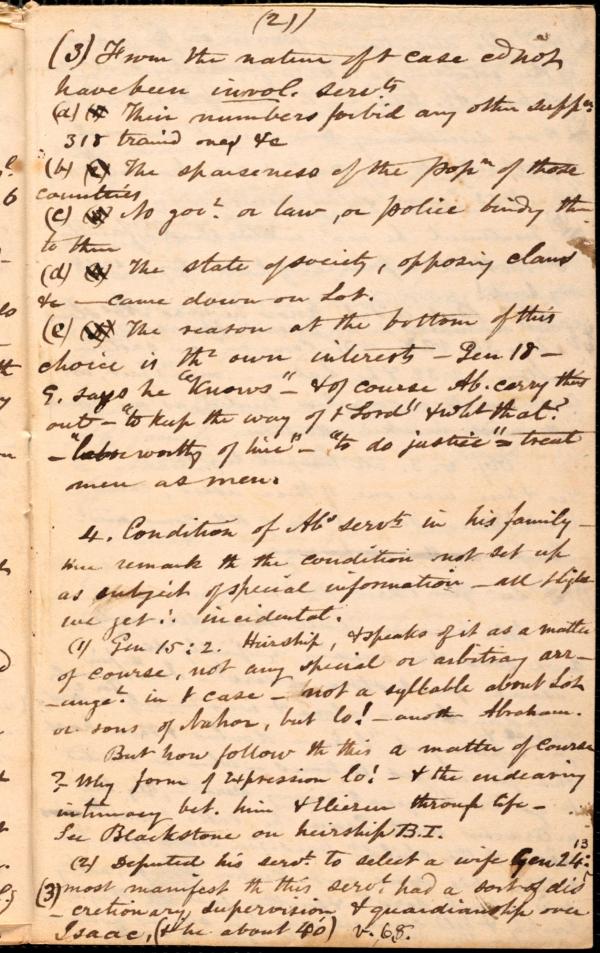 (21)
(3) From the nature of t case cd not
have been invol. servts
(a) Their numbers forbid any other suppn
318 traind ones &c
(b) The sparseness of the popn of those
countries
(c) No govt. or law, or police bindg th
to them
(d) The state of society, opposing clans
&c — came down on Lot.
(e) The reason at the bottom of this
choice is thr own interests — Gen 18 —
G. says he "Knows" — & of course Ab. carry this
out — "to keep the way of t Lord" & wht that?
— worthy of hire" — "to do justice" = treat
men as men.
4. Condition of Abs servts in his family —
remark th the condition not set up
as subject of special information — all t light
we get : incidental.
(1) Gen 15:2. Heirship, & speaks of it as a matter
of course, not any special or arbitrary arr-
-anget. in t case — not a syllable about Lot
or sons of Nahor, but lo! — Abraham.
But how follow th this a matter of course
? Why form of expression lo! — & the endearing
intimacy bet. him & Eliezer through life —
See Blackstone on heirship B.I.
(2) Deputed his servt to select a wife Gen 24:
13
(3) most manifest th this servt had a sort of dis
-cretionary supervision & guardianship over
Isaac, (& he about 40) v. 68.